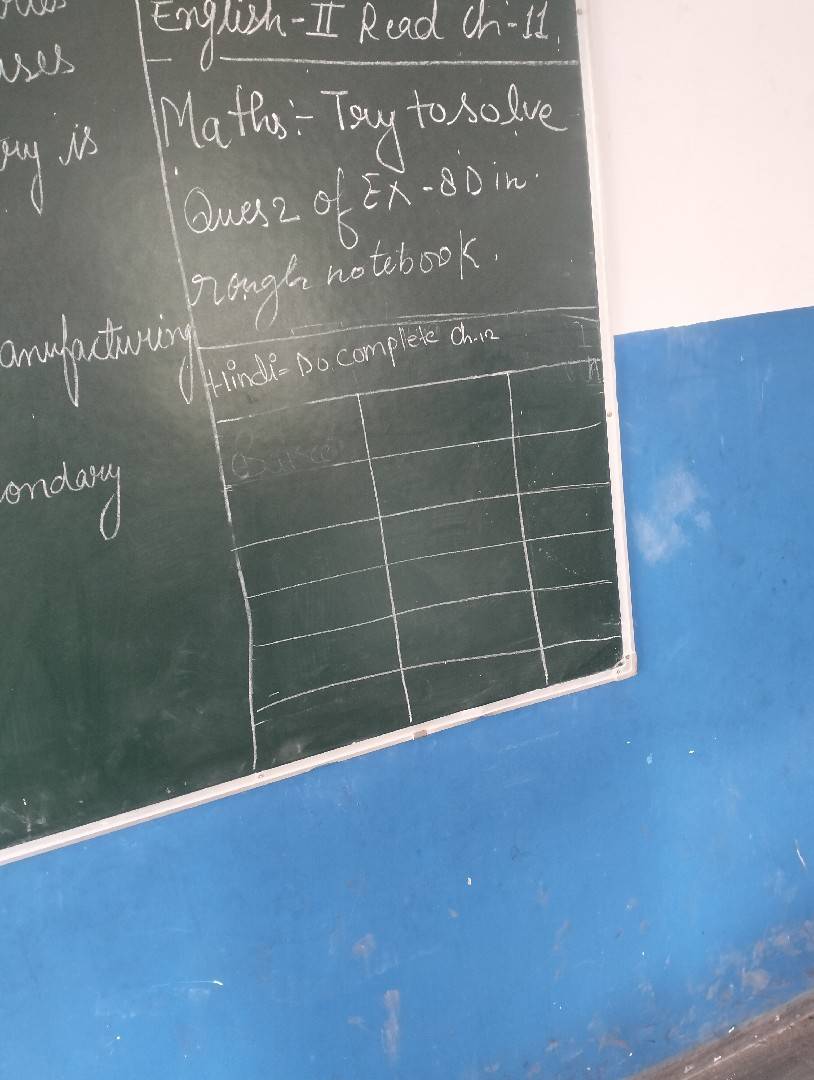 ases
is
anufacturing
ondary
English-II Read Ch-11.
Maths:- Try to solve
Ques 2 of EX-8D in
rough notebook.
Hindi= Do complete Ch.12